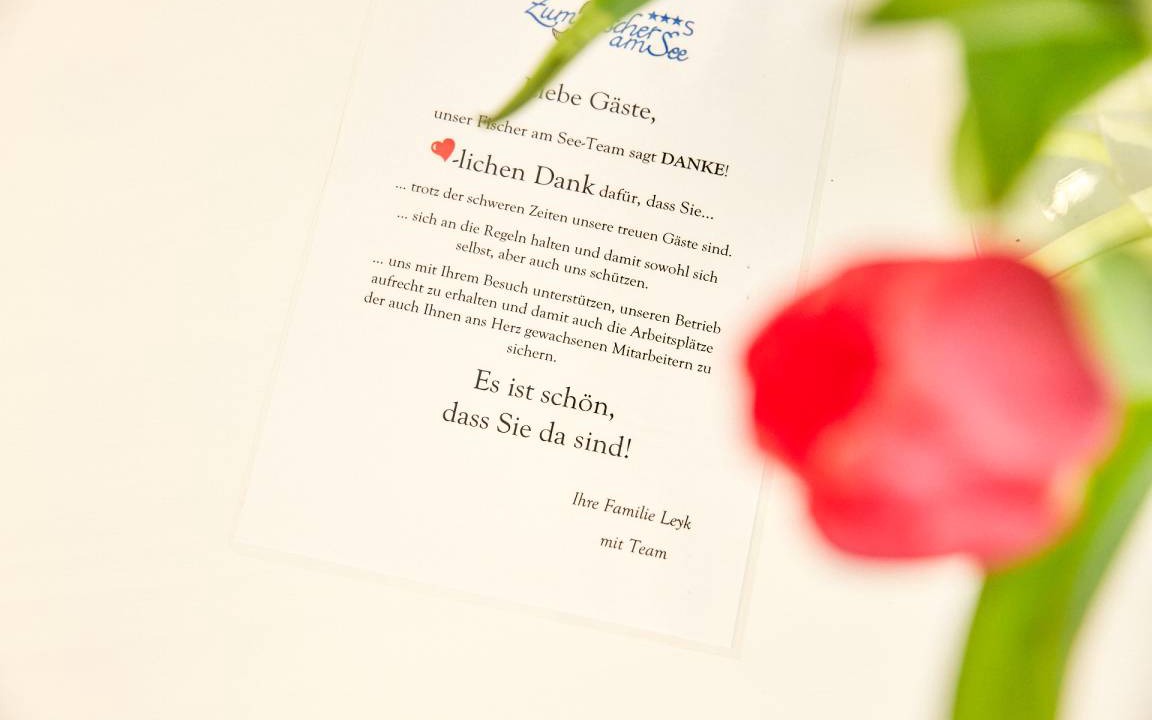 Zum Fischer ★★★S
am See
Liebe Gäste,
unser Fischer am See-Team sagt DANKE!
❤-lichen Dank dafür, dass Sie...
... trotz der schweren Zeiten unsere treuen Gäste sind.
... sich an die Regeln halten und damit sowohl sich
selbst, aber auch uns schützen.
... uns mit Ihrem Besuch unterstützen, unseren Betrieb
aufrecht zu erhalten und damit auch die Arbeitsplätze
der auch Ihnen ans Herz gewachsenen Mitarbeitern zu
sichern.
Es ist schön,
dass Sie da sind!
Ihre Familie Leyk
mit Team